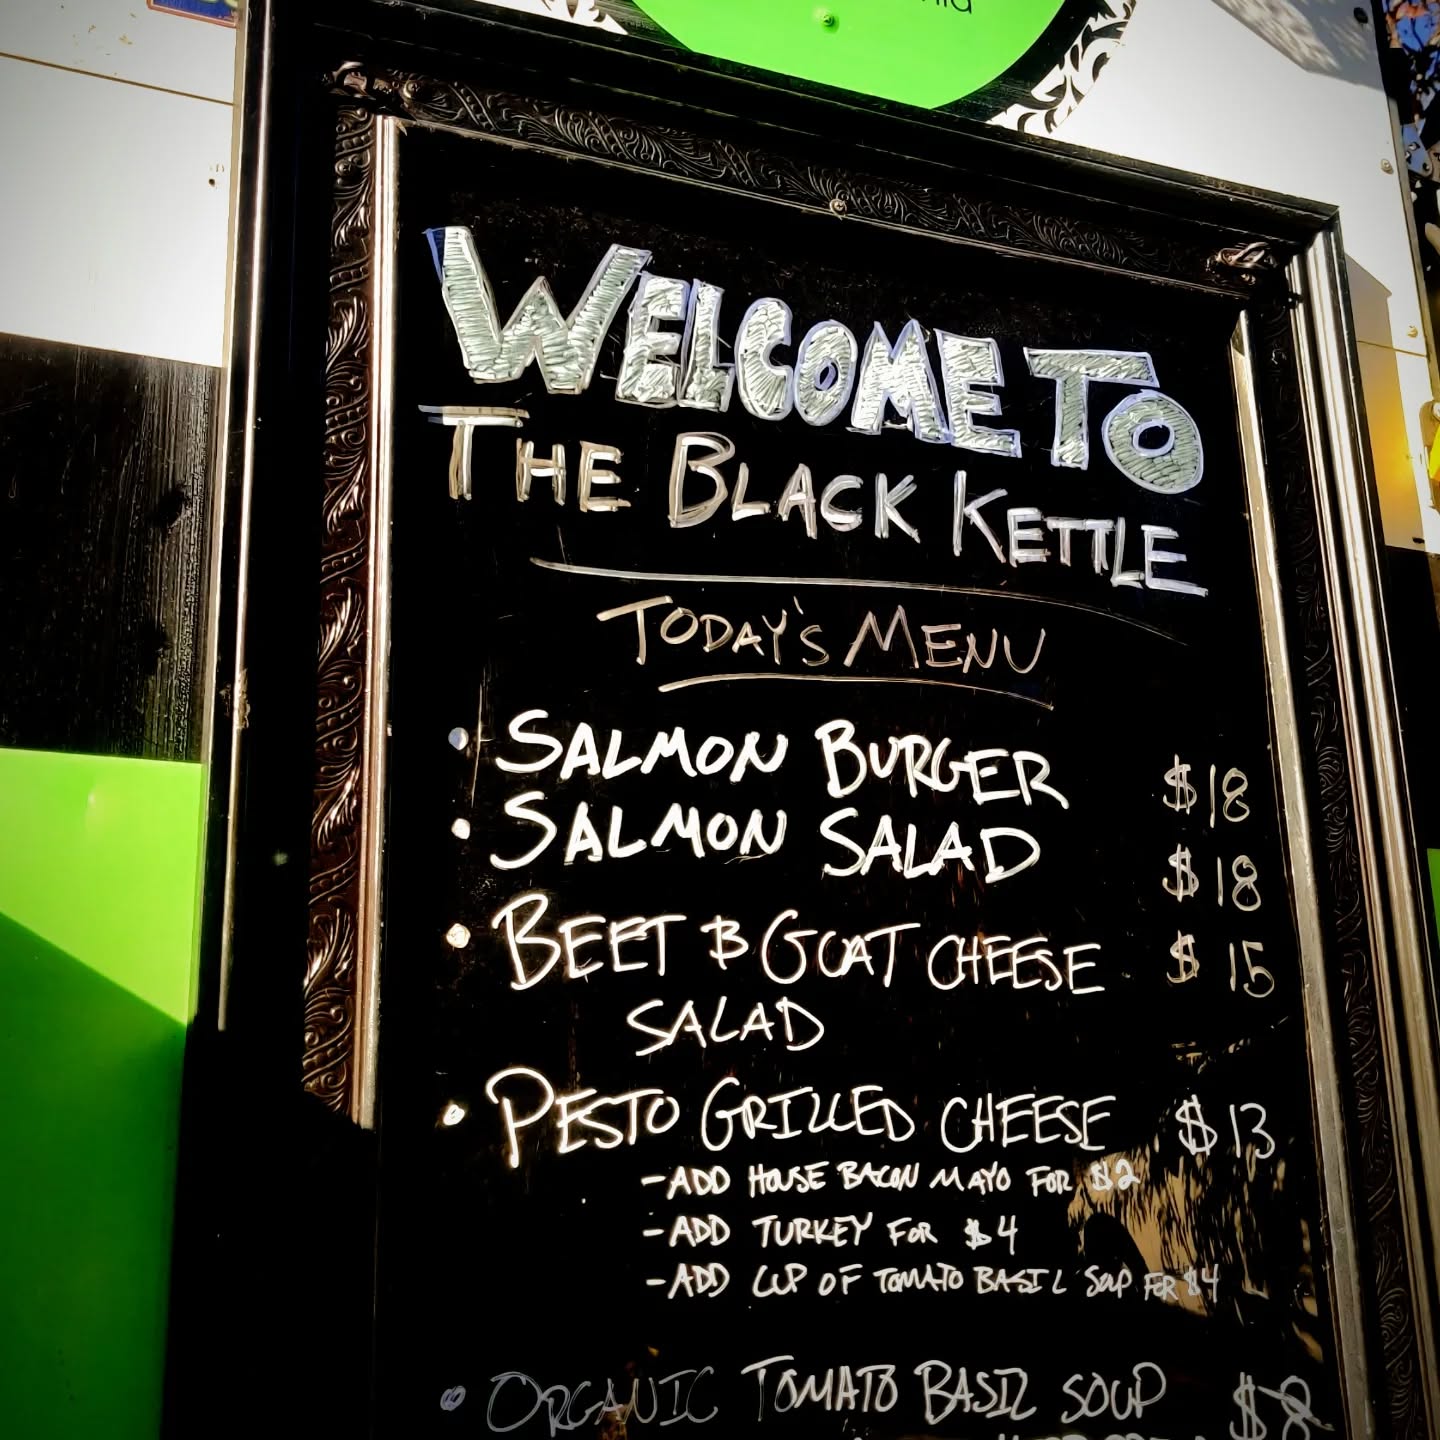 WELCOME TO
THE BLACK KETTLE
TODAY'S MENU
• SALMON BURGER $18
• SALMON SALAD $18
• BEET & GOAT CHEESE $15
SALAD
• PESTO GRILLED CHEESE $13
-ADD HOUSE BACON MAYO FOR $2
-ADD TURKEY FOR $4
-ADD CUP OF TOMATO BASIL SOUP FOR $4
• ORGANIC TOMATO BASIL SOUP $8